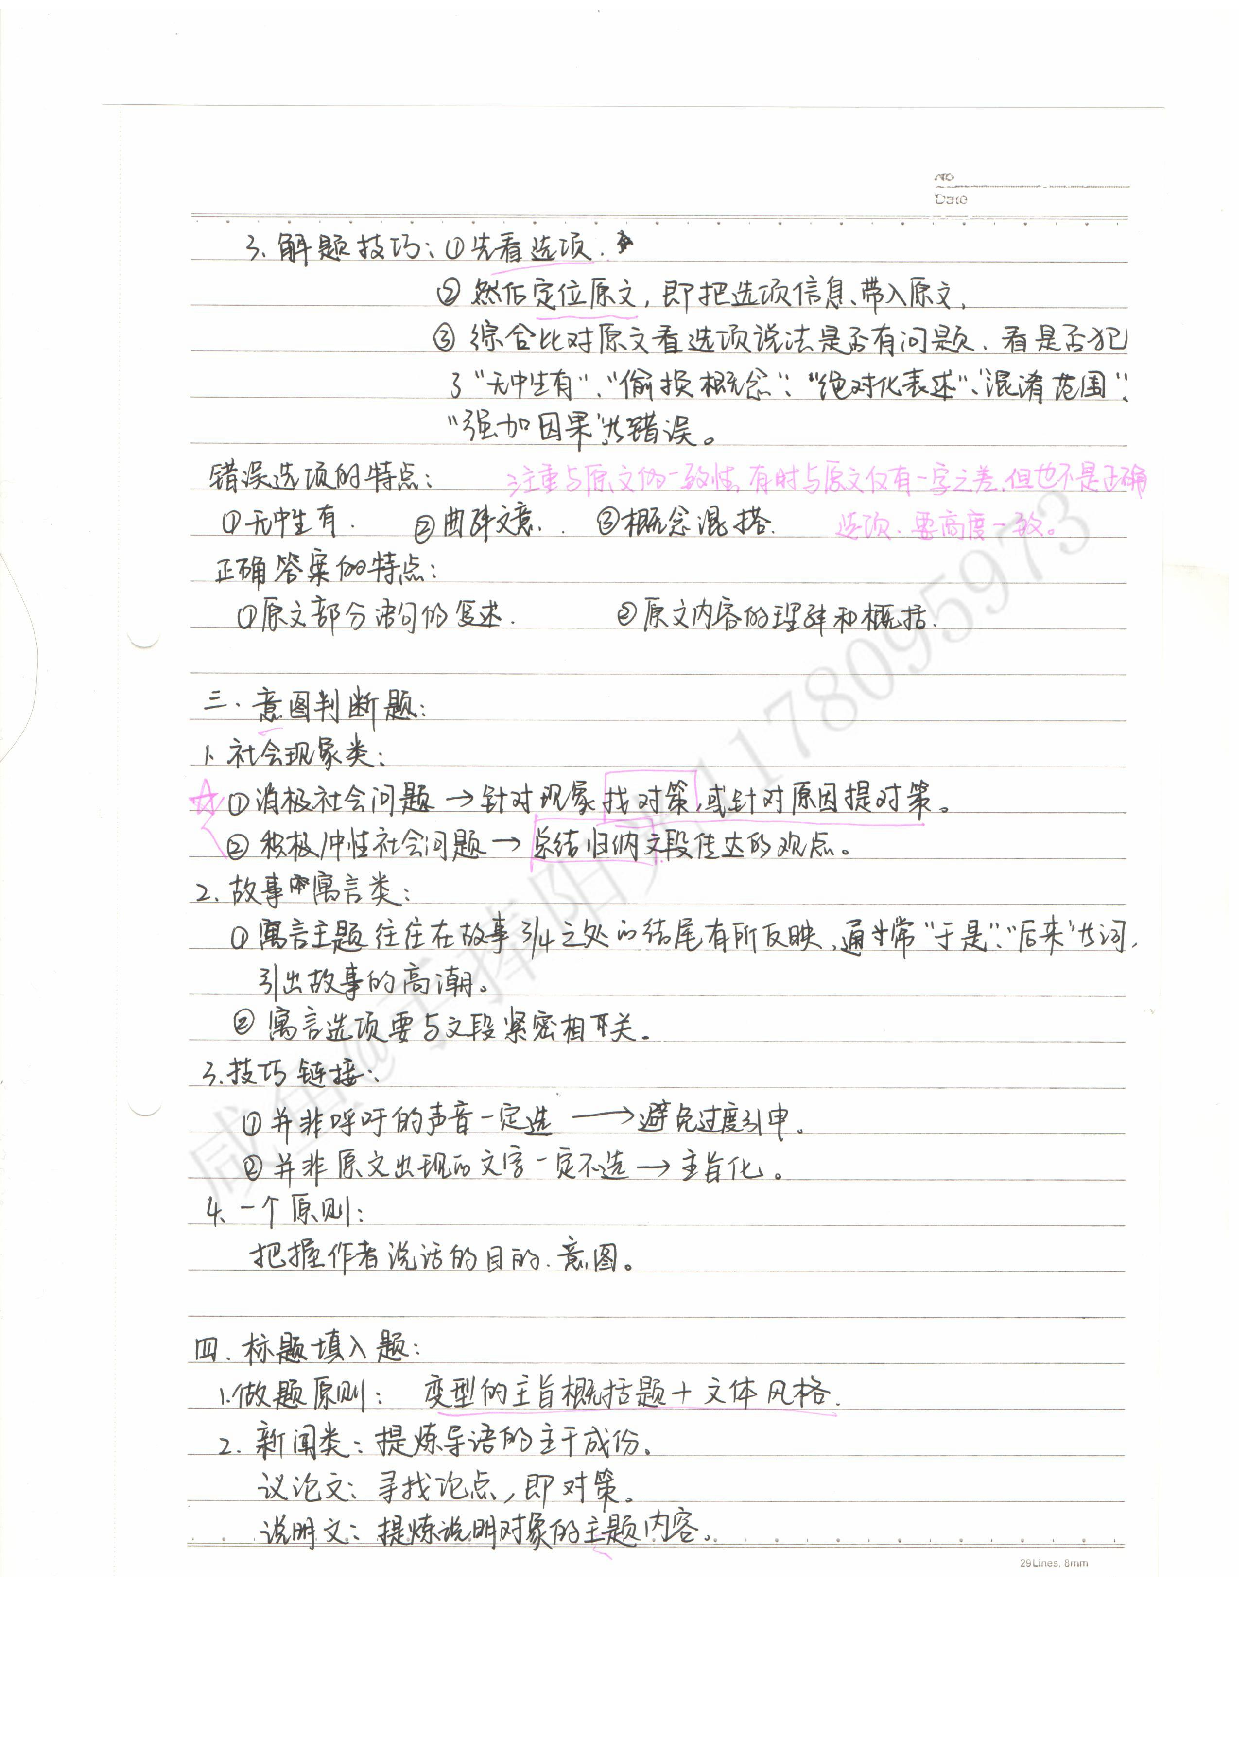 NO
Date
3. 解题技巧: ①先看选项.
② 然后定位原文, 即把选项信息、带入原文.
③ 综合比对原文看选项说法是否有问题. 看是否犯
了“无中生有”、“偷换概念”、“绝对化表述”、“混淆范围”、
“强加因果”等错误。
错误选项的特点: 注重与原文的一致性, 有时与原文仅有一字之差, 但也不是正确
①无中生有. ②曲解文意. ③概念混搭. 选项. 要高度一致。
正确答案的特点:
①原文部分语句的复述. ②原文内容的理解和概括.
三、意图判断题:
1. 社会现象类:
①消极社会问题 → 针对现象找对策, 或针对原因提对策。
② 积极/中性社会问题 → 总结归纳文段传达的观点。
2. 故事寓言类:
① 寓言主题往往在故事3/4之处的结尾有所反映, 通常“于是”、“后来”等词,
引出故事的高潮。
② 寓言选项要与文段紧密相关。
3. 技巧链接:
① 并非呼吁的声音一定选 → 避免过度引申。
② 并非原文出现的文字一定不选 → 主旨化。
4. 一个原则:
把握作者说话的目的、意图。
四. 标题填入题:
1. 做题原则: 变型的主旨概括题 + 文体风格.
2. 新闻类: 提炼导语的主干成份。
议论文: 寻找论点, 即对策。
说明文: 提炼说明对象的主题内容。
29Lines, 8mm
咸鱼@手捧阳光1178095973